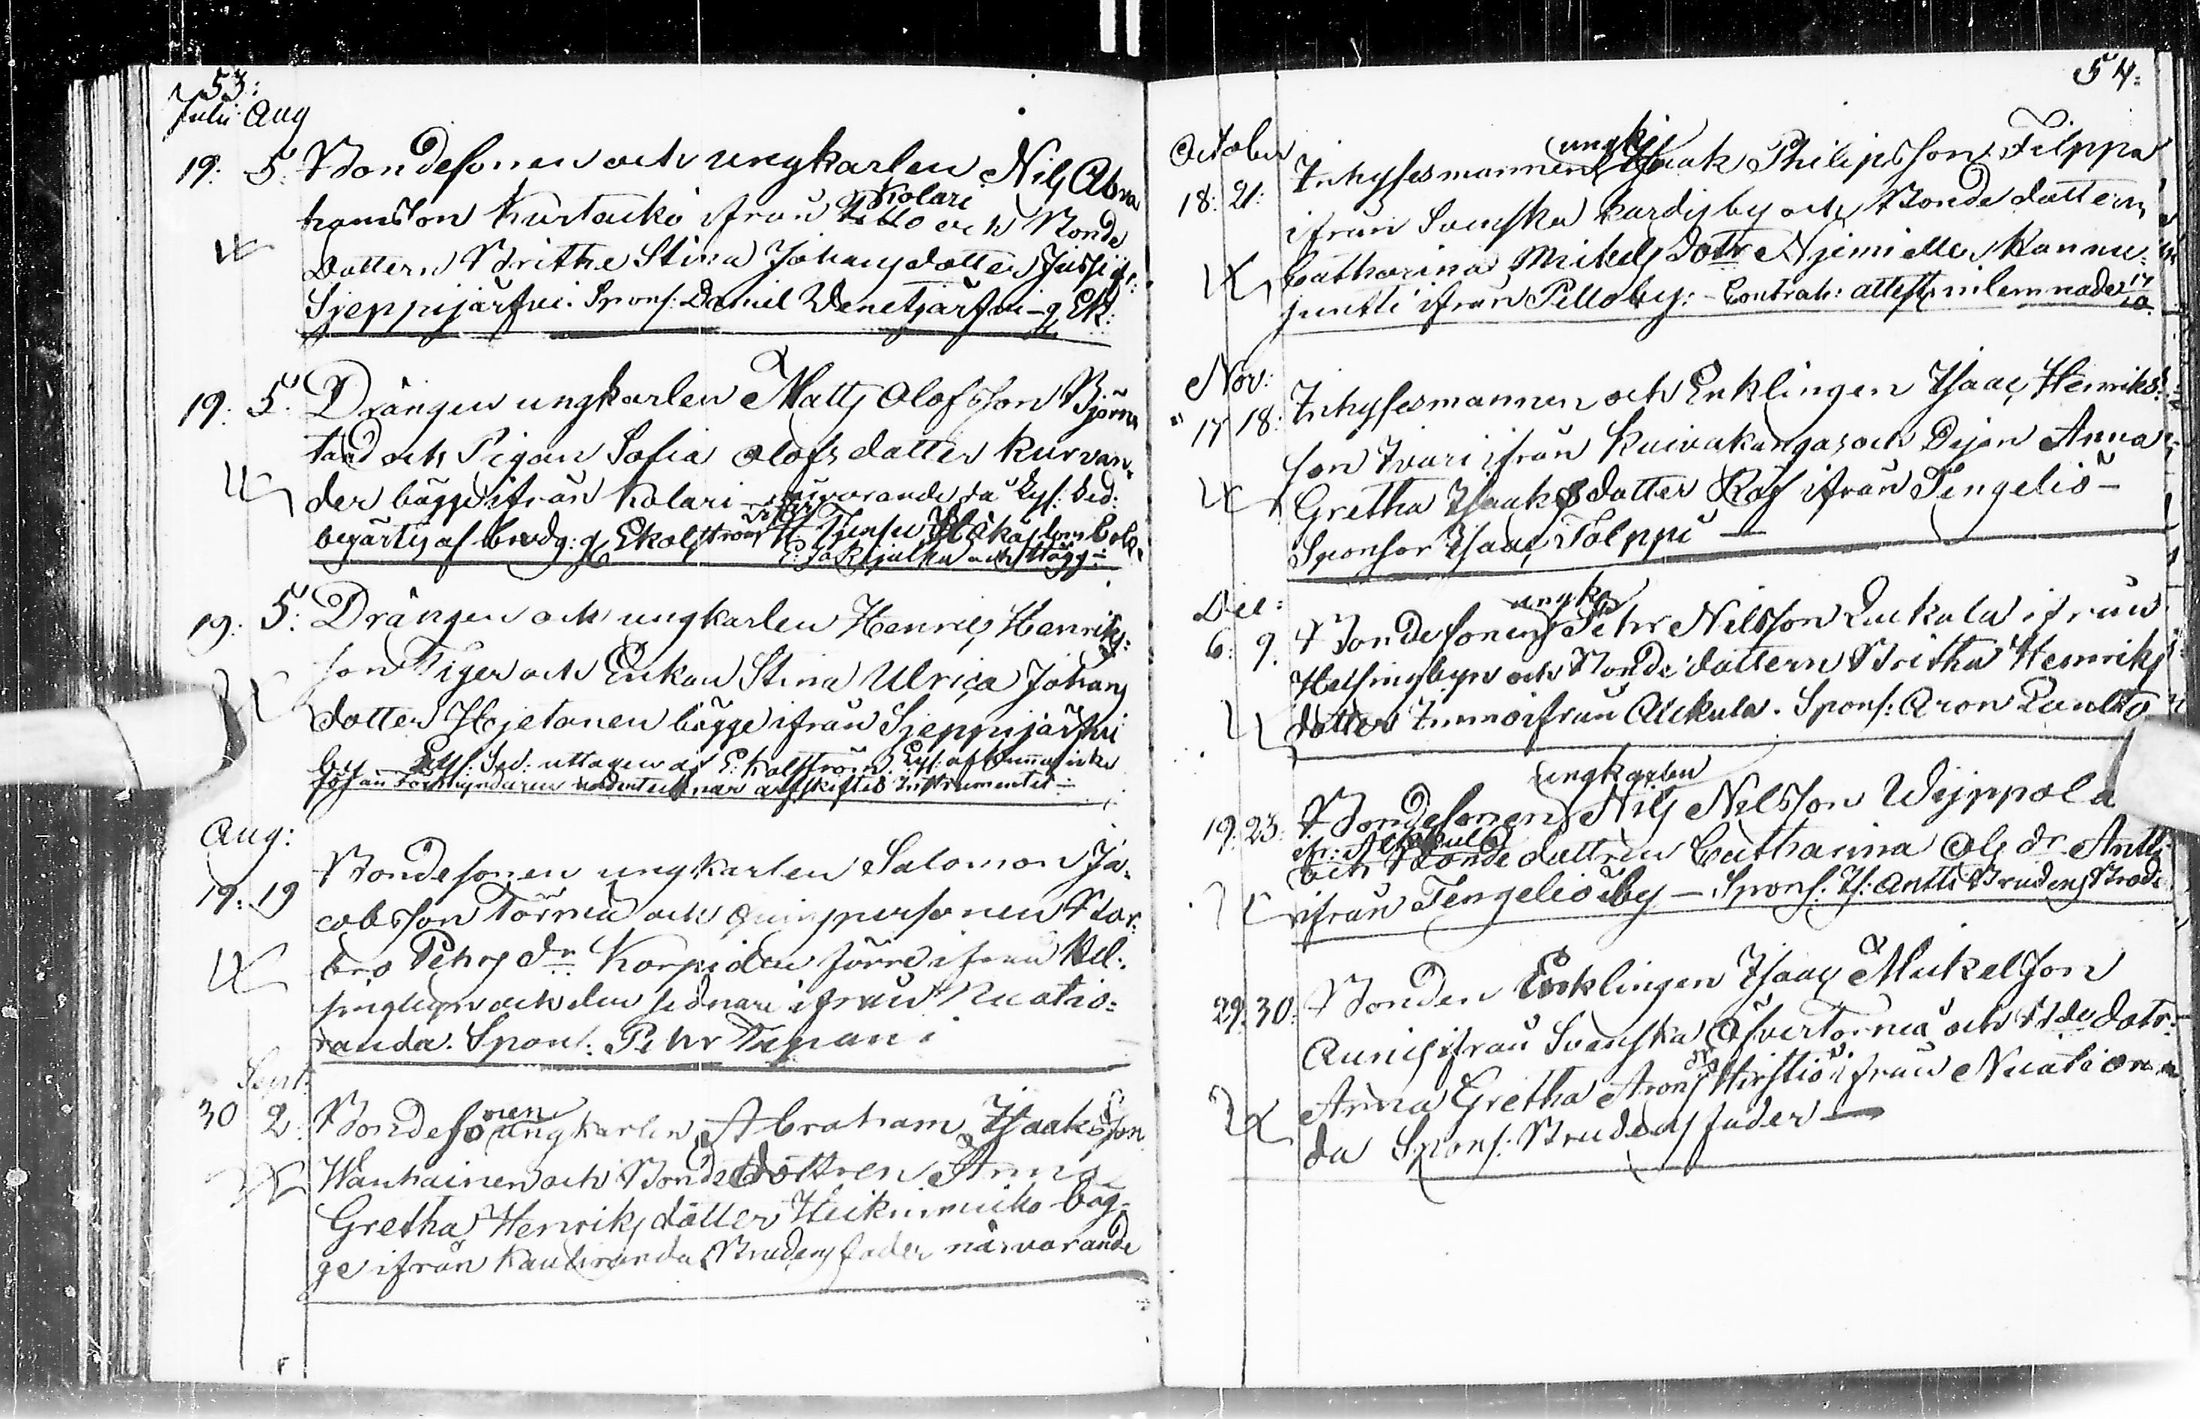 53:
Julii Aug
19: 5. Bondesonen och ungkarlen Nils Abra
hamsson Kurtacko ifrån Kolari och Bonde
dottern Britha Stina Johansdotter
Sjeppijärfvi. Spons: Daniel Wenetjärfvi
19. 5. Drängen ungkarlen Matts Olofsson Björn
och Pigan Sofia Olofsdotter Kurvan
der bägge ifrån Kolari närvarande
begärtes af brudg:
19. 5: Drängen och ungkarlen Henric Henriks
son Tiger och Enkan Stina Ulrica Johans
dotter Hjetanen bägge ifrån Sjeppijärfvi
by uttagen af E: Kolström
Förmyndaren arfskiftes Instrumentet
Aug:
19. 19 Bondesonen ungkarlen Salomon Ja
cobsson Törmä och personen Bar
bro Pehrs dr Korpi den förre ifrån Hel
singbyn och den sednare ifrån Kuatio
randa. Spons: Pehr
Sept:
30 2. Bondesonen ungkarlen Abraham Isaksson
Wanhainen och Bondedottren Anna
Gretha Henriks dotter bäg
ge ifrån Kauliranda Brudens fader närvarande
54:
October
ungk:
18: 21: Inhysesmannen Isaak Philipsson Filppa
ifrån Svenska Kardis by och Bonde dottern
Catharina Mikels Dotr Njemi eller Kannu
juntti ifrån Pello by: Contrah: attest inlemnade 17/10
Nov:
17 18: Inhysesmannen och Enklingen Isaac Henriks
son Ivari ifrån Kuivakangas och Pigan Anna
Gretha Isaaksdotter ifrån Tengeliö
Sponsor Isaac Tolppi
Dec:
ungk
6: 9. Bondesonen Pehr Nelsson Luckula ifrån
Helsingbyn och Bonde dottern Britha Henriks
dotter ifrån Alckula. Spons: Aron
ungkarlen
19. 23: Bondesonen Nils Nelsson Wejppola
ifr: Alckula
och Bonde dottren Catharina Ols dr Antti
ifrån Tengeliö by – Spons: Is: Antti Brudens Brod
29. 30: Bonden Enklingen Isaac Mickelsson
Aunis ifrån Svenska Öfvertorneå och Bde dotr
Anna Gretha Arons dr Hirstiö ifrån Kuatioran
da Spons: Brudens fader